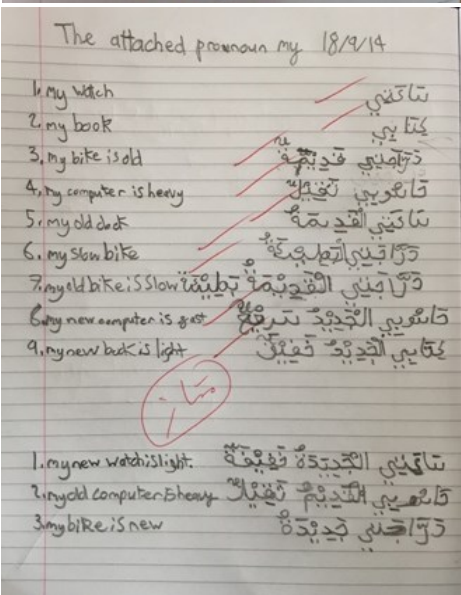 The attached pronoun my 18/9/14
1. my watch سَاعَتِي
2. my book كِتَابِي
3. my bike is old دَرَّاجَتِي قَدِيمَةٌ
4. my computer is heavy حَاسُوبِي ثَقِيلٌ
5. my old clock سَاعَتِي القَدِيمَةُ
6. my slow bike دَرَّاجَتِي البَطِيئَةُ
7. my old bike is slow دَرَّاجَتِي القَدِيْمَةُ بَطِيئَةٌ
8. my new computer is fast حَاسُوبِي الجَدِيدُ سَرِيعٌ
9. my new book is light كِتَابِي الجَدِيْدُ خَفِيْفٌ
ممتاز
1. my new watch is light. سَاعَتِي الجَدِيْدَةُ خَفِيْفَةٌ
2. my old computer is heavy حَاسُوبِي القَدِيْمُ ثَقِيْلٌ
3. my bike is new دَرَّاجَتِي جَدِيْدَةٌ